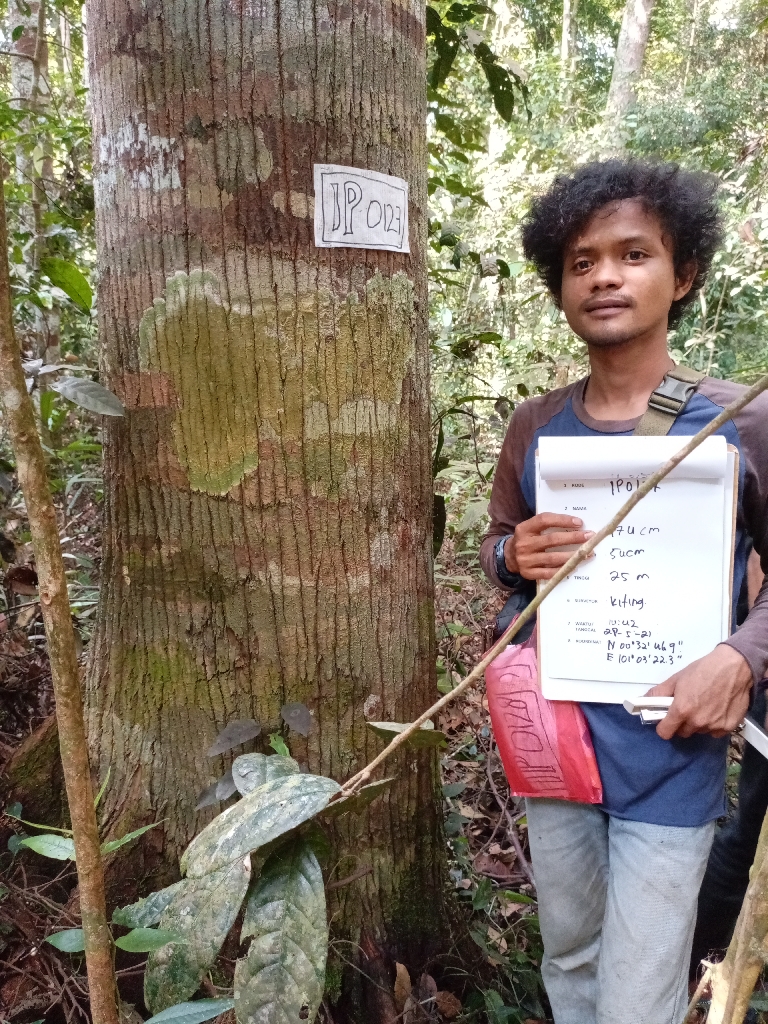 IP 0123
1 KODE IP0123
2 NAMA
174 cm
54cm
5 TINGGI 25 m
6 SURVEYOR Kiting.
7 WAKTU/ TANGGAL 10:42
28-5-21
8 KOORDINAT N 00°32'46.9"
E 101°03'22.3"